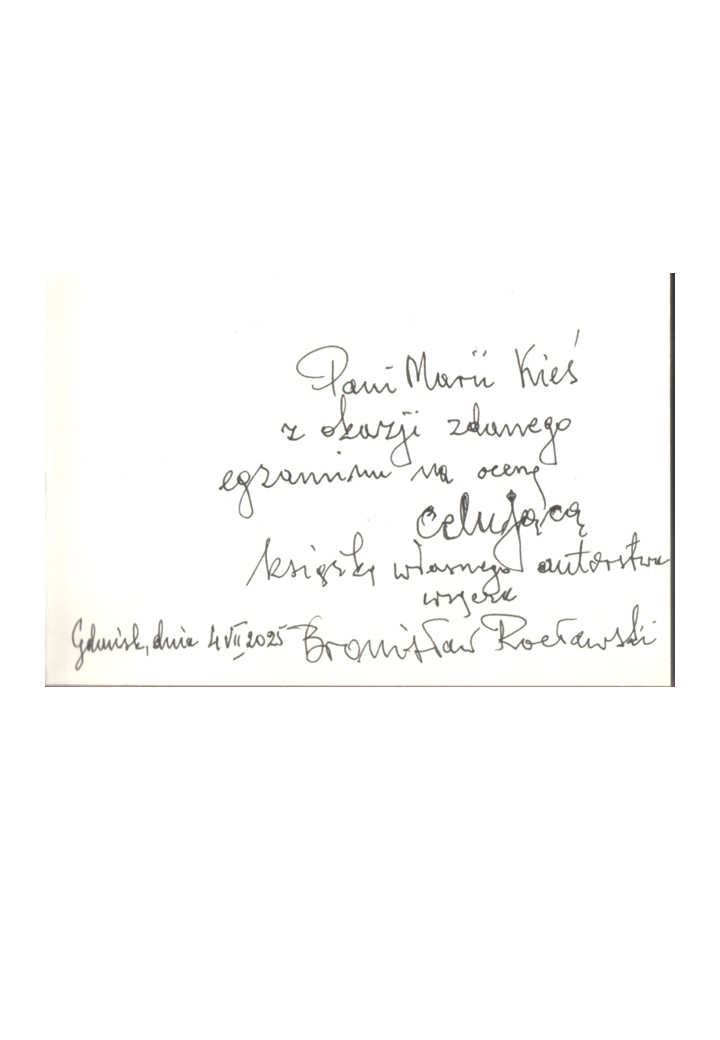 Pani Marii Kieś
z okazji zdanego
egzaminu na ocenę
celującą
książkę własnego autorstwa
wręcza
Gdańsk, dnia 4 VII 2025 Bronisław Rocławski